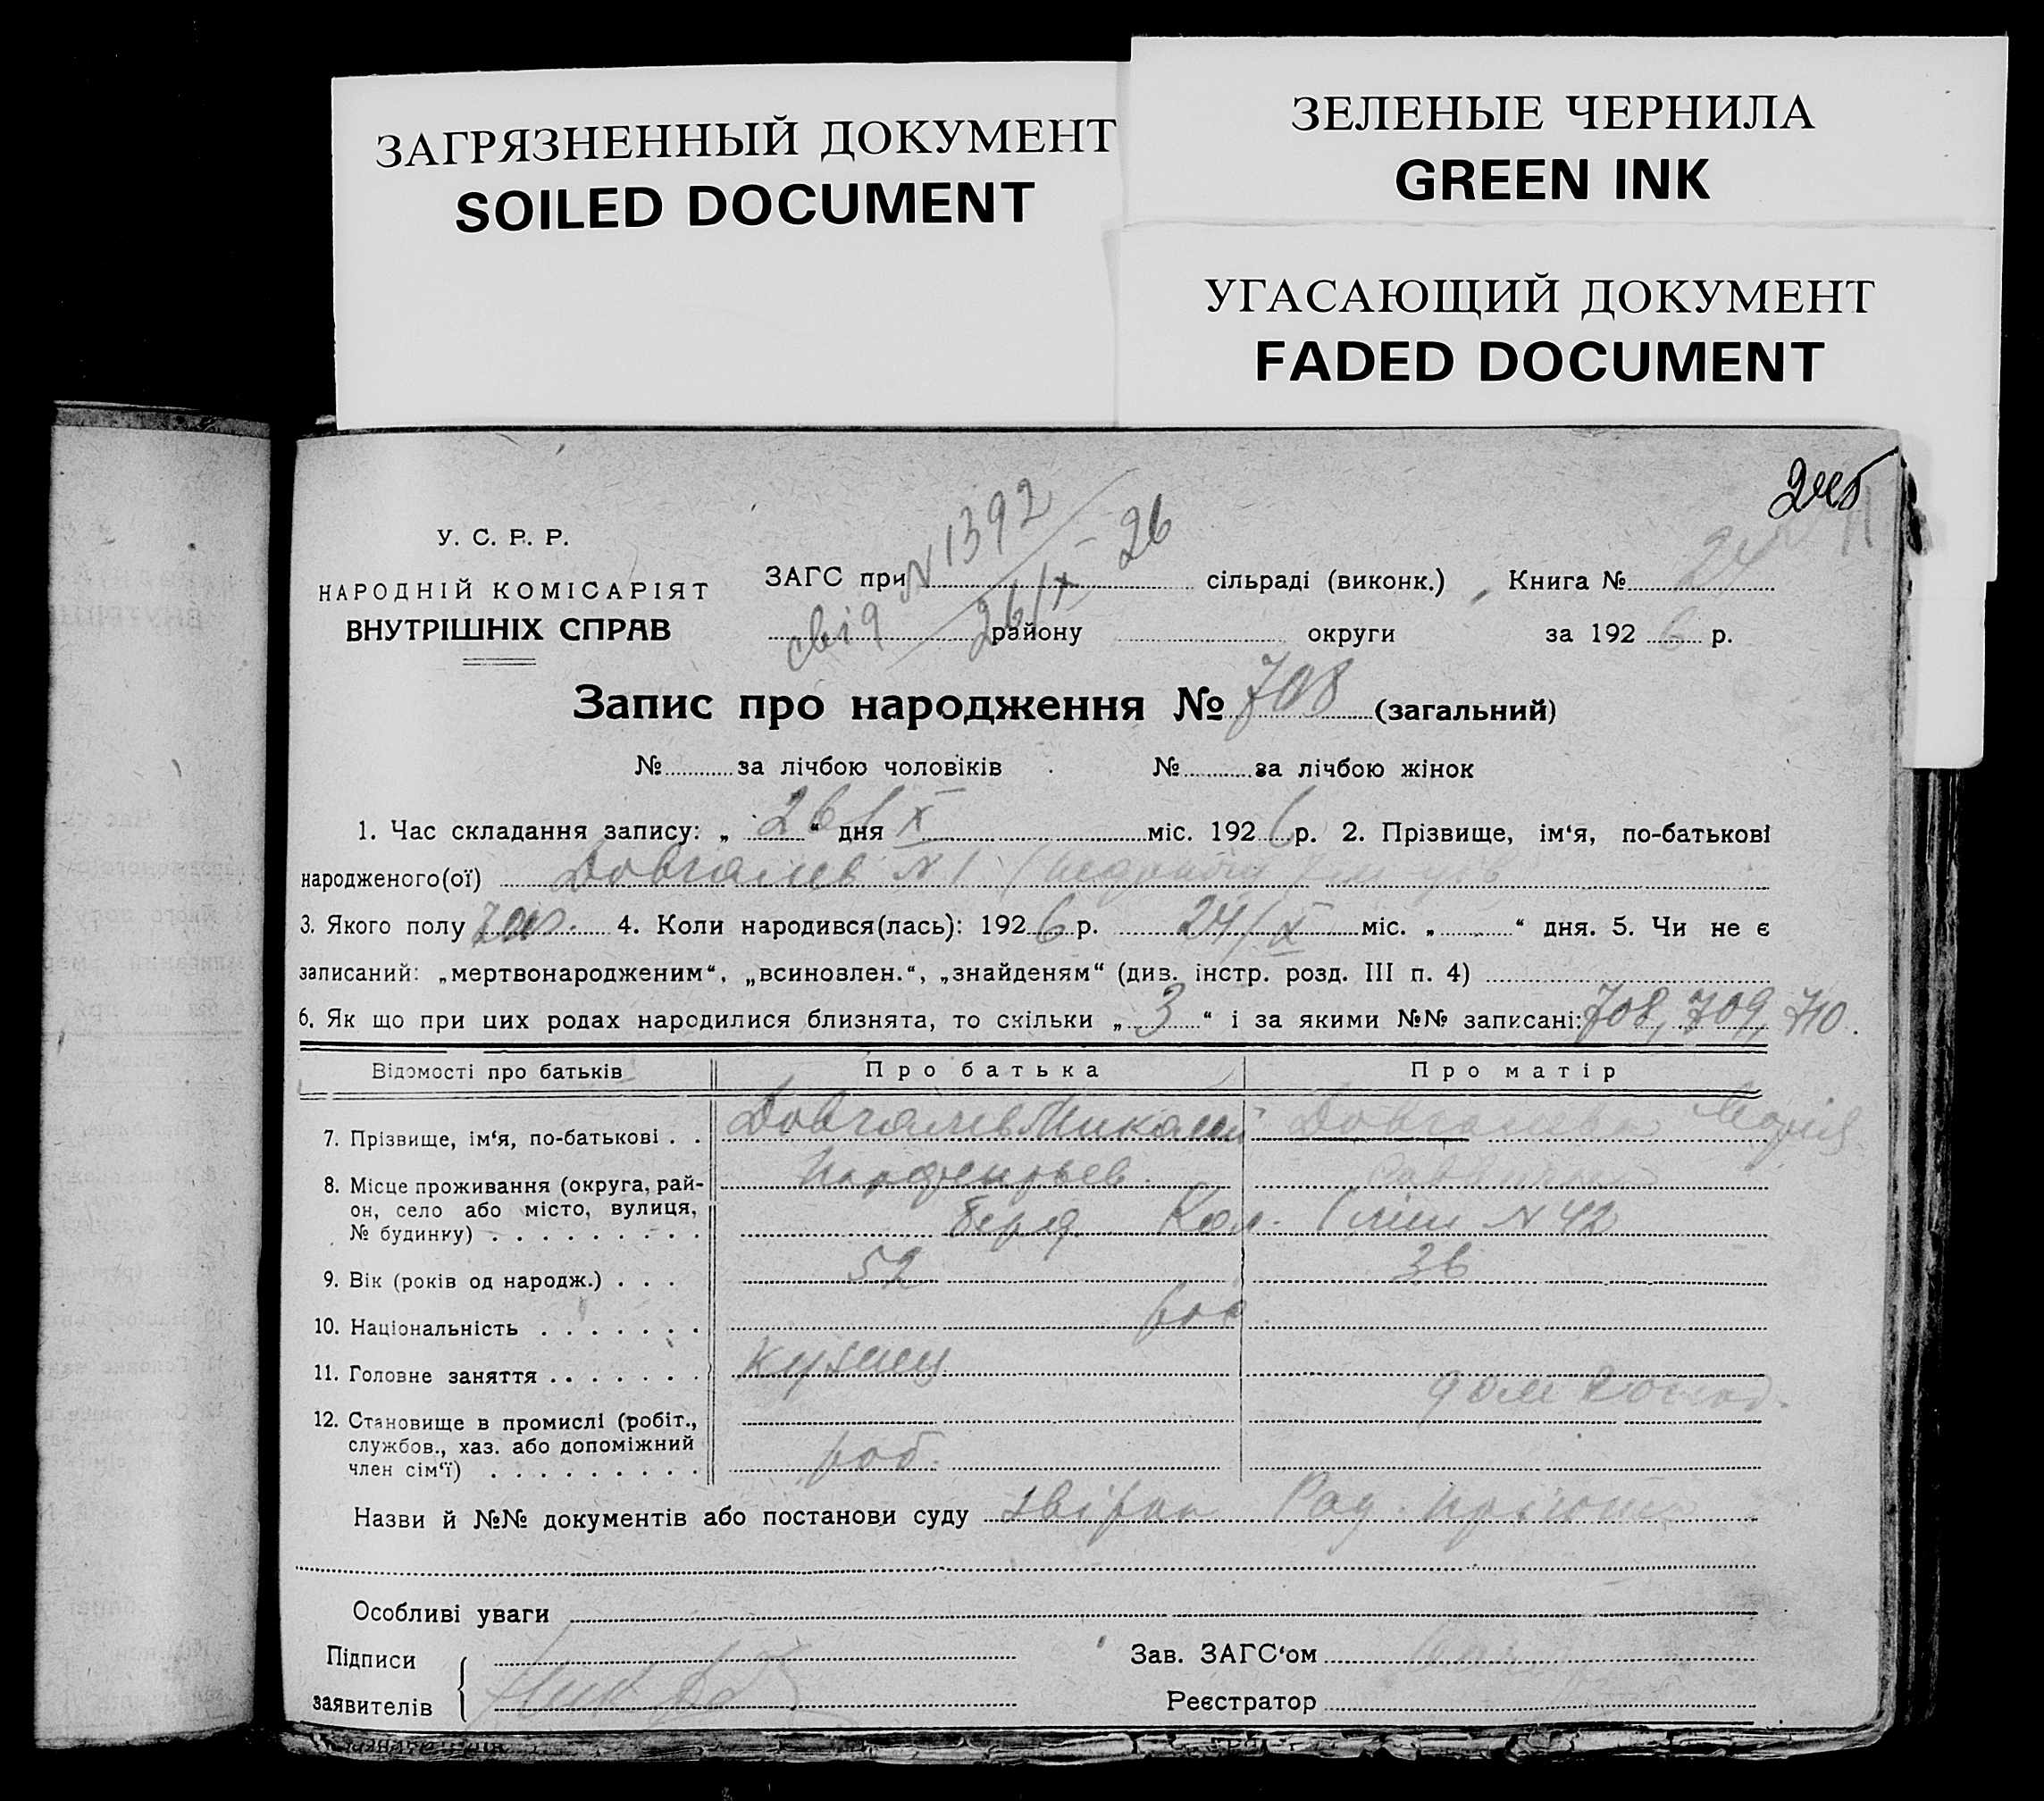 ЗАГРЯЗНЕННЫЙ ДОКУМЕНТ
SOILED DOCUMENT
ЗЕЛЕНЫЕ ЧЕРНИЛА
GREEN INK
УГАСАЮЩИЙ ДОКУМЕНТ
FADED DOCUMENT
У. С. Р. Р.
НАРОДНІЙ КОМІСАРІЯТ
ВНУТРІШНІХ СПРАВ
ЗАГС при сільраді (виконк.) Книга № 24
району округи за 192 6 р.
N 1392
26/X - 26
Запис про народження № 708 (загальний)
№ за лічбою чоловіків № за лічбою жінок
1. Час складання запису: „ 26 “ дня X міс. 192 6 р. 2. Прізвище, ім‘я, по-батькові
народженого(ої) Довгалев N 1
3. Якого полу 4. Коли народився(лась): 192 6 р. 24/X міс. „ “ дня. 5. Чи не є
записаний: „мертвонародженим“, „всиновлен.“, „знайденям“ (див. інстр. розд. III п. 4)
6. Як що при цих родах народилися близнята, то скільки „ 3 “ і за якими №№ записані: 708, 709, 710.
Відомості про батьків Про батька Про матір
7. Прізвище, ім‘я, по-батькові . . Довгалев Николай Довгалева Марія
8. Місце проживання (округа, рай-
он, село або місто, вулиця,
№ будинку) N 42
9. Вік (років од народж.) . . . 52 36
10. Національність . . . . . . . рос.
11. Головне заняття . . . . . . . кузнец дом господ.
12. Становище в промислі (робіт.,
службов., хаз. або допоміжний
член сім‘ї) . . . . . . . . . роб.
Назви й №№ документів або постанови суду
Особливі уваги
Підписи
заявителів
Зав. ЗАГС‘ом
Реєстратор